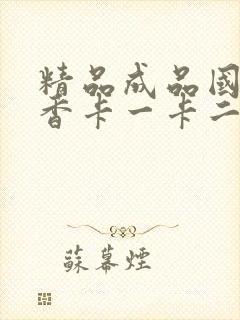 精品成品國
香卡一卡二
蘇幕煙